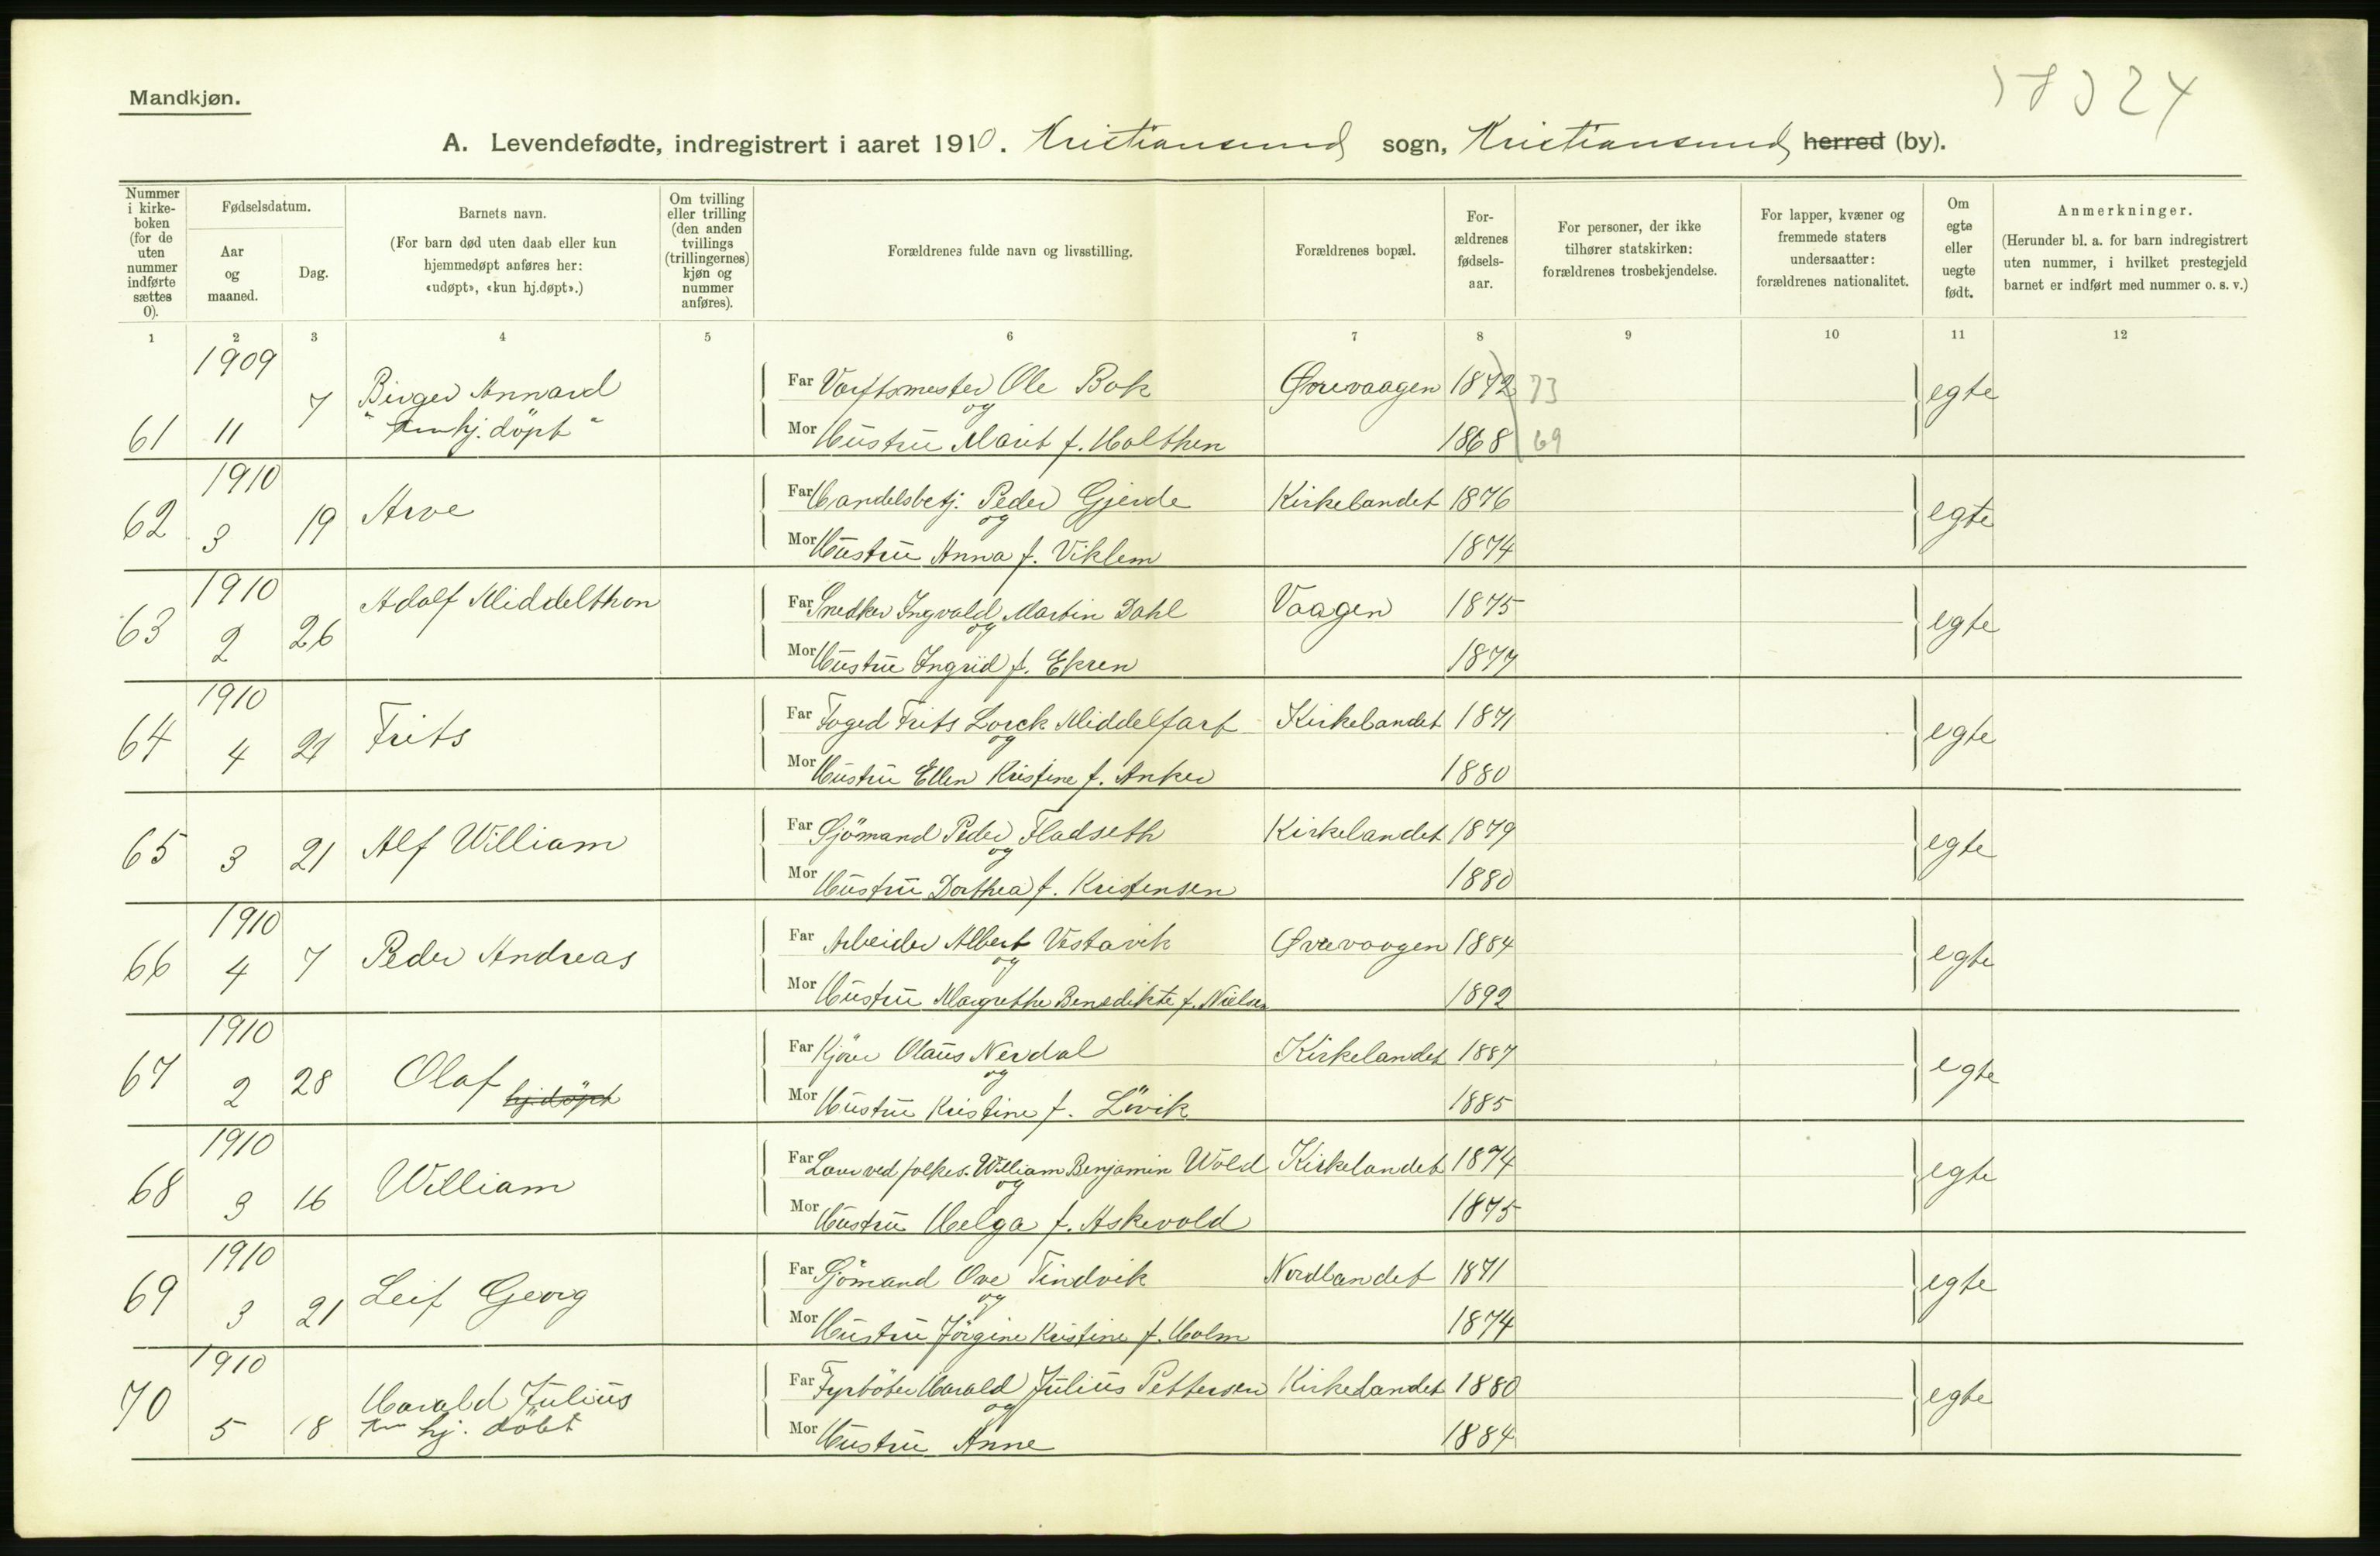 Mandkjøn.
A. Levendefødte, indregistrert i aaret 1910. Kristiansund sogn, Kristiansund herred (by).
Nummer i kirkeboken (for de uten nummer indførte sættes 0).
Fødselsdatum.
Aar og maaned.
Dag.
Barnets navn.
(For barn død uten daab eller kun hjemmedøpt anføres her: «udøpt», «kun hj.døpt».)
Om tvilling eller trilling (den anden tvillings (trillingernes) kjøn og nummer anføres).
Forældrenes fulde navn og livsstilling.
Forældrenes bopæl.
Forældrenes fødselsaar.
For personer, der ikke tilhører statskirken: forældrenes trosbekjendelse.
For lapper, kvæner og fremmede staters undersaatter: forældrenes nationalitet.
Om egte eller uegte født.
Anmerkninger.
(Herunder bl. a. for barn indregistrert uten nummer, i hvilket prestegjeld barnet er indført med nummer o. s. v.)
1 2 3 4 5 6 7 8 9 10 11 12
1909
61 11 7 Birger Annard
" hj. döpt "
Far Varftsmester Ole Bok Ørevaagen 1872 73
og
Mor Hustru Marit f. Holthen 1868 69
egte
1910
62 3 19 Arve
Far Handelsbetj. Peder Gjerde Kirkelandet 1876
og
Mor Hustru Anna f. Viklem 1874
egte
1910
63 2 26 Adolf Middelthon
Far Snedker Ingvald Martin Dahl Vaagen 1875
og
Mor Hustru Ingrid f. Ekren 1877
egte
1910
64 4 21 Frits
Far Foged Frits Lorck Middelfart Kirkelandet 1871
og
Mor Hustru Ellen Kristine f. Anker 1880
egte
65 3 21 Alf William
Far Sjömand Peder Fladseth Kirkelandet 1879
og
Mor Hustru Dorthea f. Kristensen 1880
egte
1910
66 4 7 Peder Andreas
Far Arbeider Albert Vestavik Ørevaagen 1884
og
Mor Hustru Margrethe Benedikte f. Nielsen 1892
egte
1910
67 2 28 Olaf hj.döpt
Far Kjörer Olaus Nerdal Kirkelandet 1887
og
Mor Hustru Kristine f. Lövik 1885
egte
1910
68 3 16 William
Far Lærer ved folkes. William Benjamin Wold Kirkelandet 1874
og
Mor Hustru Helga f. Askevold 1875
egte
1910
69 3 21 Leif Georg
Far Sjömand Ove Tindvik Nordlandet 1871
og
Mor Hustru Jörgine Kristine f. Holm 1874
egte
1910
70 5 18 Harald Julius
hj. döbt
Far Fyrböter Harald Julius Pettersen Kirkelandet 1880
og
Mor Hustru Anne 1884
egte